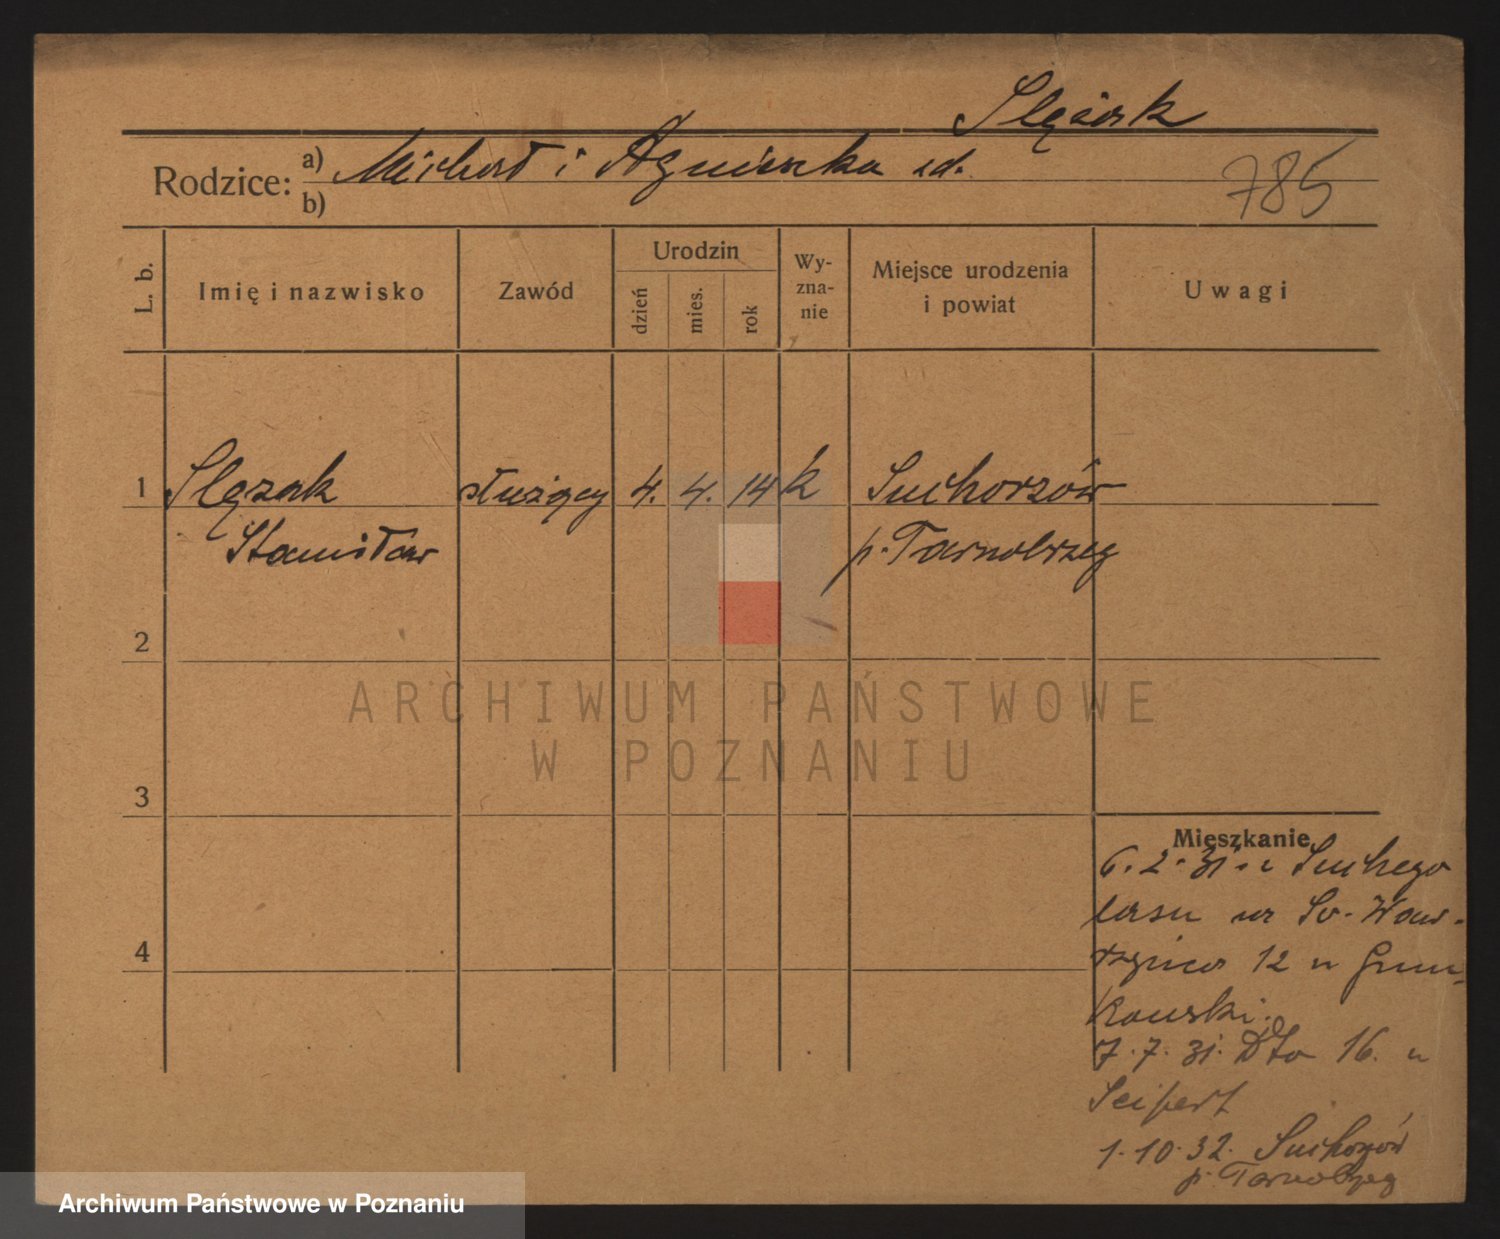 Ślęzak
Rodzice: a) Michał i Agnieszka zd.
b)
785
L. b.
Imię i nazwisko
Zawód
Urodzin
dzień
mies.
rok
Wy-
zna-
nie
Miejsce urodzenia
i powiat
Uwagi
1 Ślęzak służący 4. 4. 14 k Suchorzów
Stanisław p. Tarnobrzeg
2
3
4
ARCHIWUM PAŃSTWOWE
W POZNANIU
Mieszkanie
6. 2. 31. z Suchego
lasu na Św. Waw-
rzyńca 12 u
7. 7. 31. Dto 16. u
Seifert
1. 10. 32. Suchorzów
p. Tarnobrzeg
Archiwum Państwowe w Poznaniu